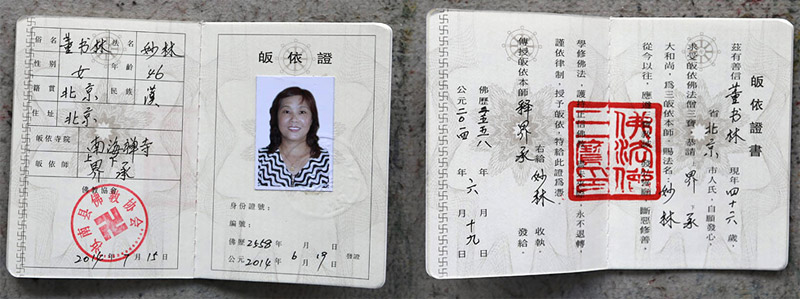 俗名 董书林 法名 妙林
性别 女 年齡 46
籍貫 北京 民族 漢
住址 北京
皈依寺院 南海禅寺
皈依師 上界下承
佛教協會
汝南县佛教协会
2014年 月15日
皈依證
身份證號：
編號：
佛歷2558年 月 日
公元2014年6月19日 發證
皈依證書
茲有善信董书林現年四十六歲，
省北京市人氏，自願發心，
求受皈依佛法僧三寶，恭請上界下承
大和尚，爲三皈依本師，賜法名：妙林
從今以往，應 斷惡修善，
學修佛法，護持正 永不退轉，
謹依律制，授予皈依，特給此證爲憑。
右給妙林收執
傳授皈依本師釋界承發給。
佛歷 五五八年
公元二〇一四年六月十九日
佛法僧三寶印